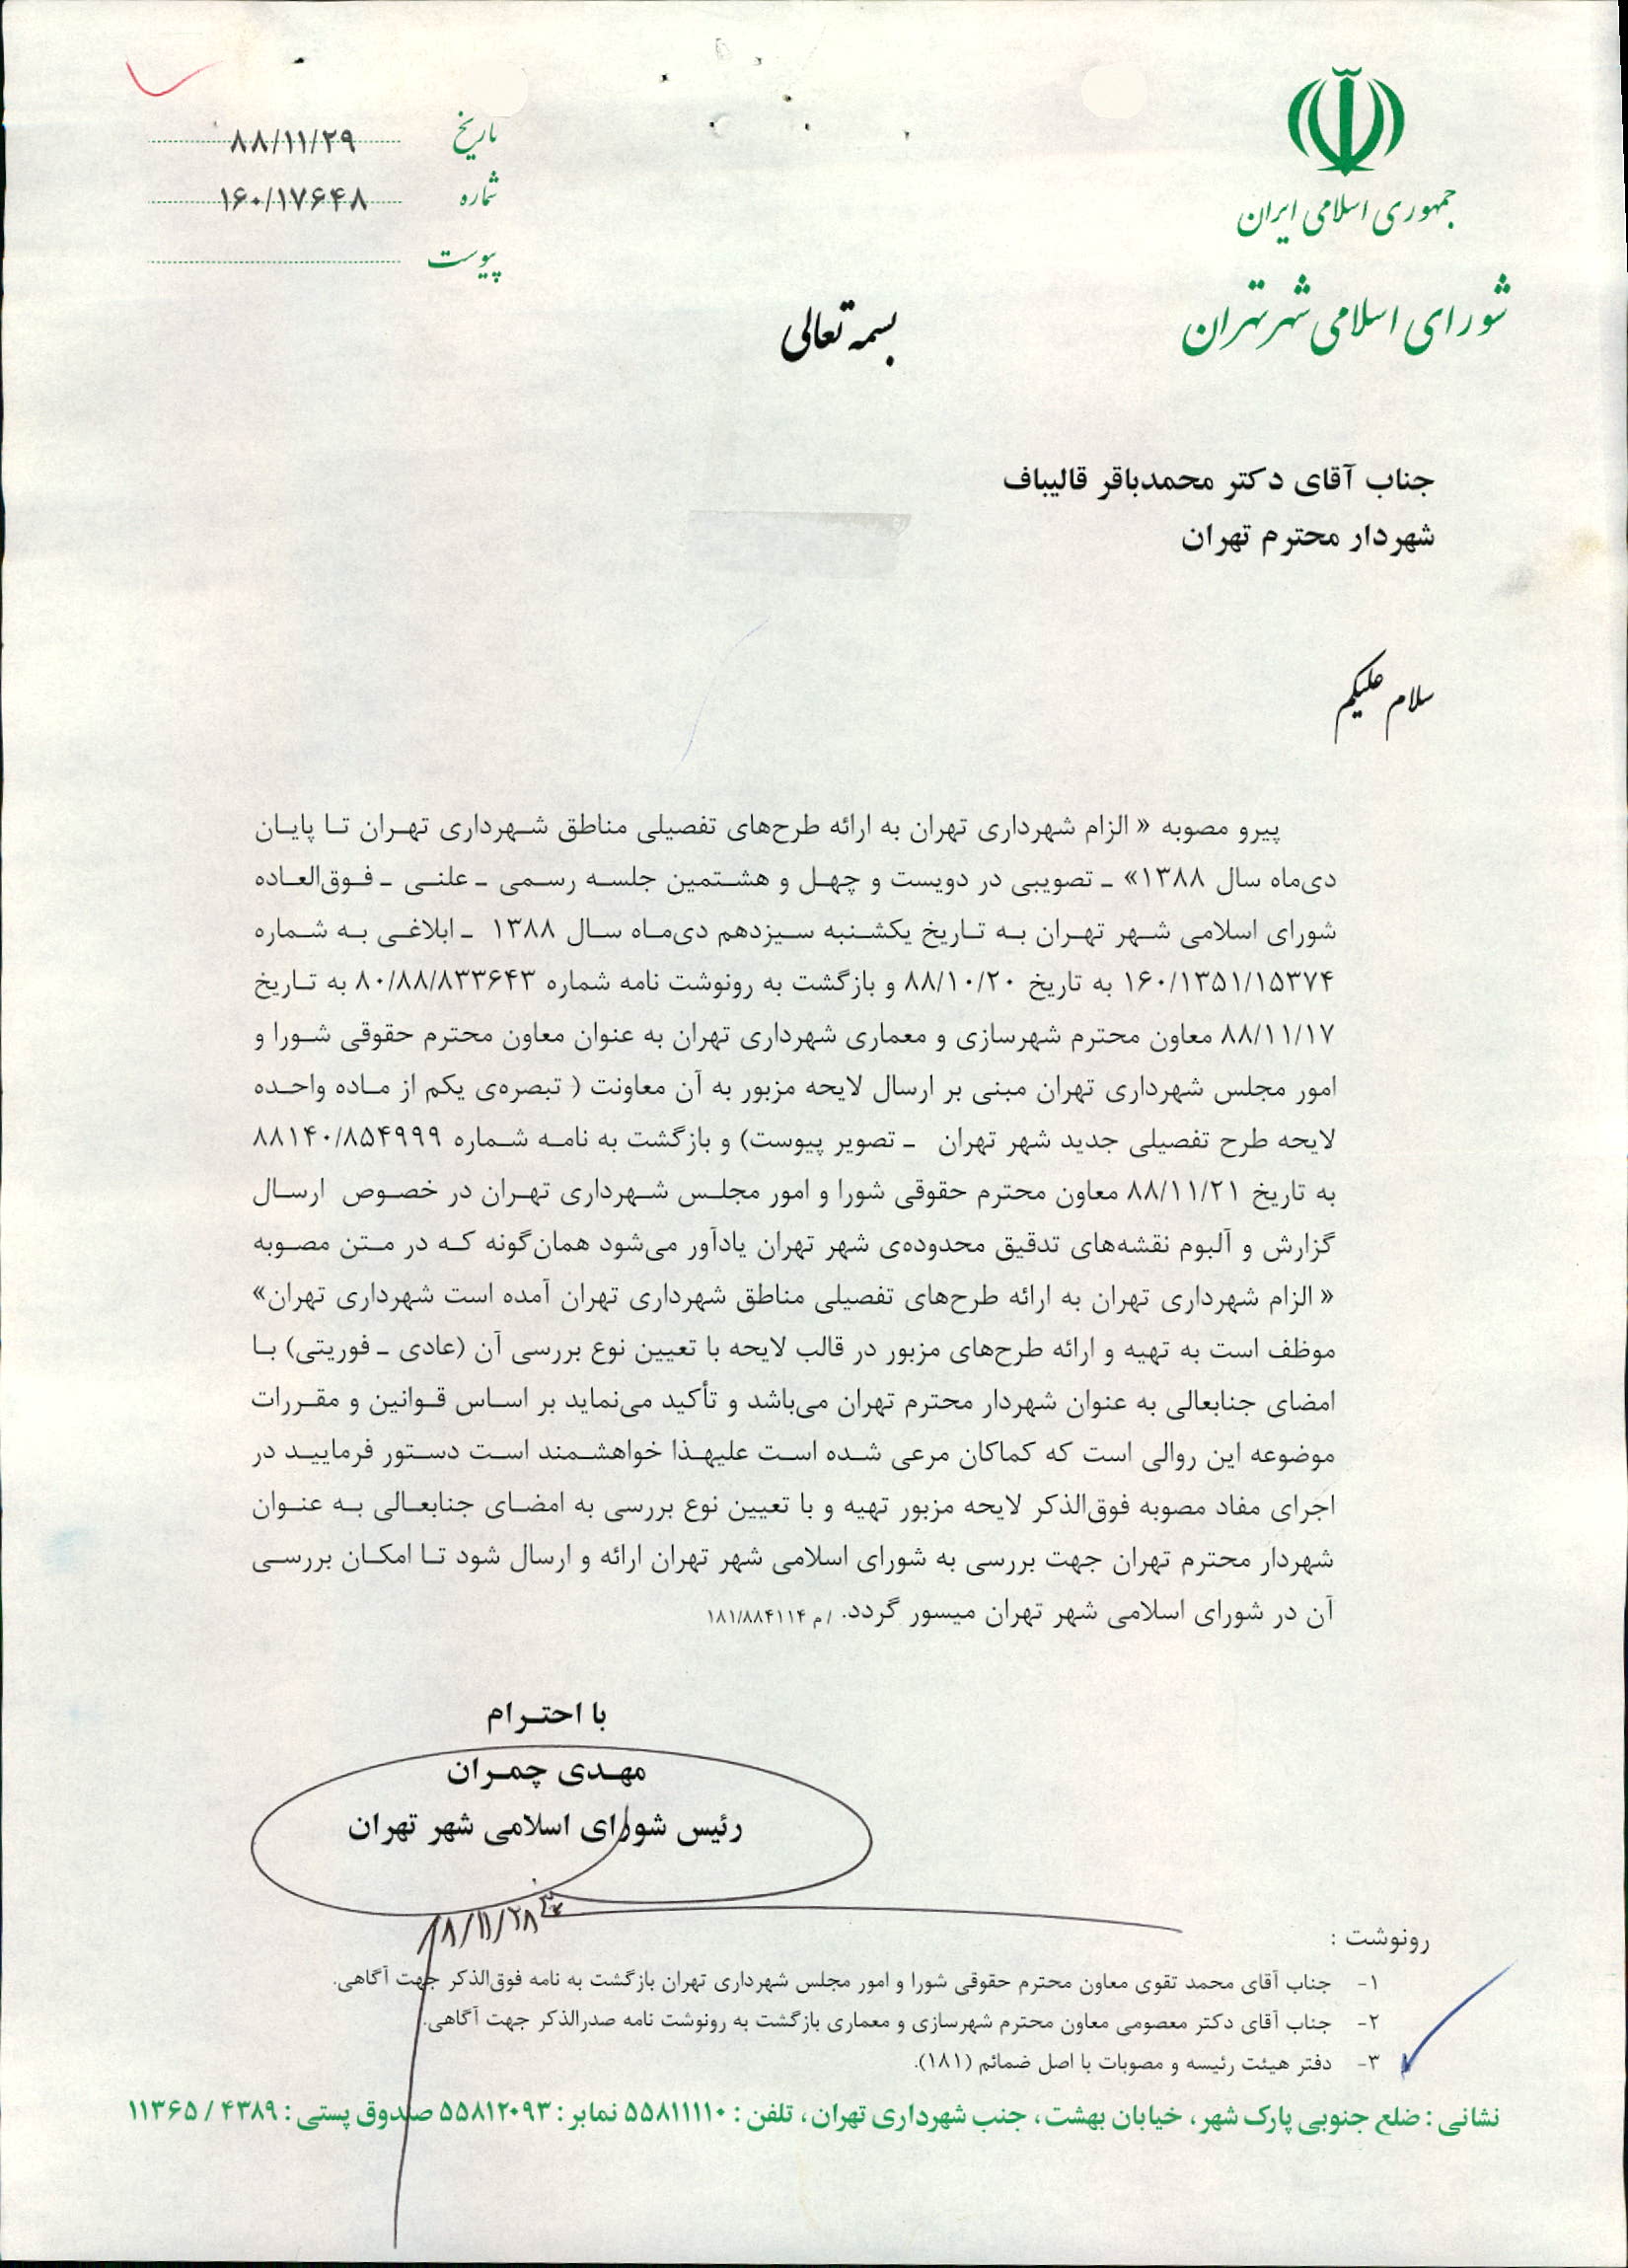 جمهوری اسلامی ایران
شورای اسلامی شهر تهران
تاریخ ۸۸/۱۱/۲۹
شماره ۱۶۰/۱۷۶۴۸
پیوست
بسمه تعالی
جناب آقای دکتر محمدباقر قالیباف
شهردار محترم تهران
سلام علیکم
پیرو مصوبه « الزام شهرداری تهران به ارائه طرح‌های تفصیلی مناطق شهرداری تهران تا پایان
دی‌ماه سال ۱۳۸۸» ـ تصویبی در دویست و چهل و هشتمین جلسه رسمی ـ علنی ـ فوق‌العاده
شورای اسلامی شهر تهران به تاریخ یکشنبه سیزدهم دی‌ماه سال ۱۳۸۸ ـ ابلاغی به شماره
۱۶۰/۱۳۵۱/۱۵۳۷۴ به تاریخ ۸۸/۱۰/۲۰ و بازگشت به رونوشت نامه شماره ۸۰/۸۸/۸۳۳۶۴۳ به تاریخ
۸۸/۱۱/۱۷ معاون محترم شهرسازی و معماری شهرداری تهران به عنوان معاون محترم حقوقی شورا و
امور مجلس شهرداری تهران مبنی بر ارسال لایحه مزبور به آن معاونت ( تبصره‌ی یکم از ماده واحده
لایحه طرح تفصیلی جدید شهر تهران ـ تصویر پیوست) و بازگشت به نامه شماره ۸۸۱۴۰/۸۵۴۹۹۹
به تاریخ ۸۸/۱۱/۲۱ معاون محترم حقوقی شورا و امور مجلس شهرداری تهران در خصوص ارسال
گزارش و آلبوم نقشه‌های تدقیق محدوده‌ی شهر تهران یادآور می‌شود همان‌گونه که در متن مصوبه
« الزام شهرداری تهران به ارائه طرح‌های تفصیلی مناطق شهرداری تهران آمده است شهرداری تهران»
موظف است به تهیه و ارائه طرح‌های مزبور در قالب لایحه با تعیین نوع بررسی آن (عادی ـ فوریتی) با
امضای جنابعالی به عنوان شهردار محترم تهران می‌باشد و تأکید می‌نماید بر اساس قوانین و مقررات
موضوعه این روالی است که کماکان مرعی شده است علیهذا خواهشمند است دستور فرمایید در
اجرای مفاد مصوبه فوق‌الذکر لایحه مزبور تهیه و با تعیین نوع بررسی به امضای جنابعالی به عنوان
شهردار محترم تهران جهت بررسی به شورای اسلامی شهر تهران ارائه و ارسال شود تا امکان بررسی
آن در شورای اسلامی شهر تهران میسور گردد. /م ۱۸۱/۸۸۴۱۱۴
با احترام
مهدی چمران
رئیس شورای اسلامی شهر تهران
۸/۱۱/۲۸
رونوشت :
۱- جناب آقای محمد تقوی معاون محترم حقوقی شورا و امور مجلس شهرداری تهران بازگشت به نامه فوق‌الذکر جهت آگاهی.
۲- جناب آقای دکتر معصومی معاون محترم شهرسازی و معماری بازگشت به رونوشت نامه صدرالذکر جهت آگاهی.
۳- دفتر هیئت رئیسه و مصوبات با اصل ضمائم (۱۸۱).
نشانی : ضلع جنوبی پارک شهر، خیابان بهشت، جنب شهرداری تهران، تلفن : ۵۵۸۱۱۱۱۰ نمابر : ۵۵۸۱۲۰۹۳ صندوق پستی : ۴۳۸۹ / ۱۱۳۶۵